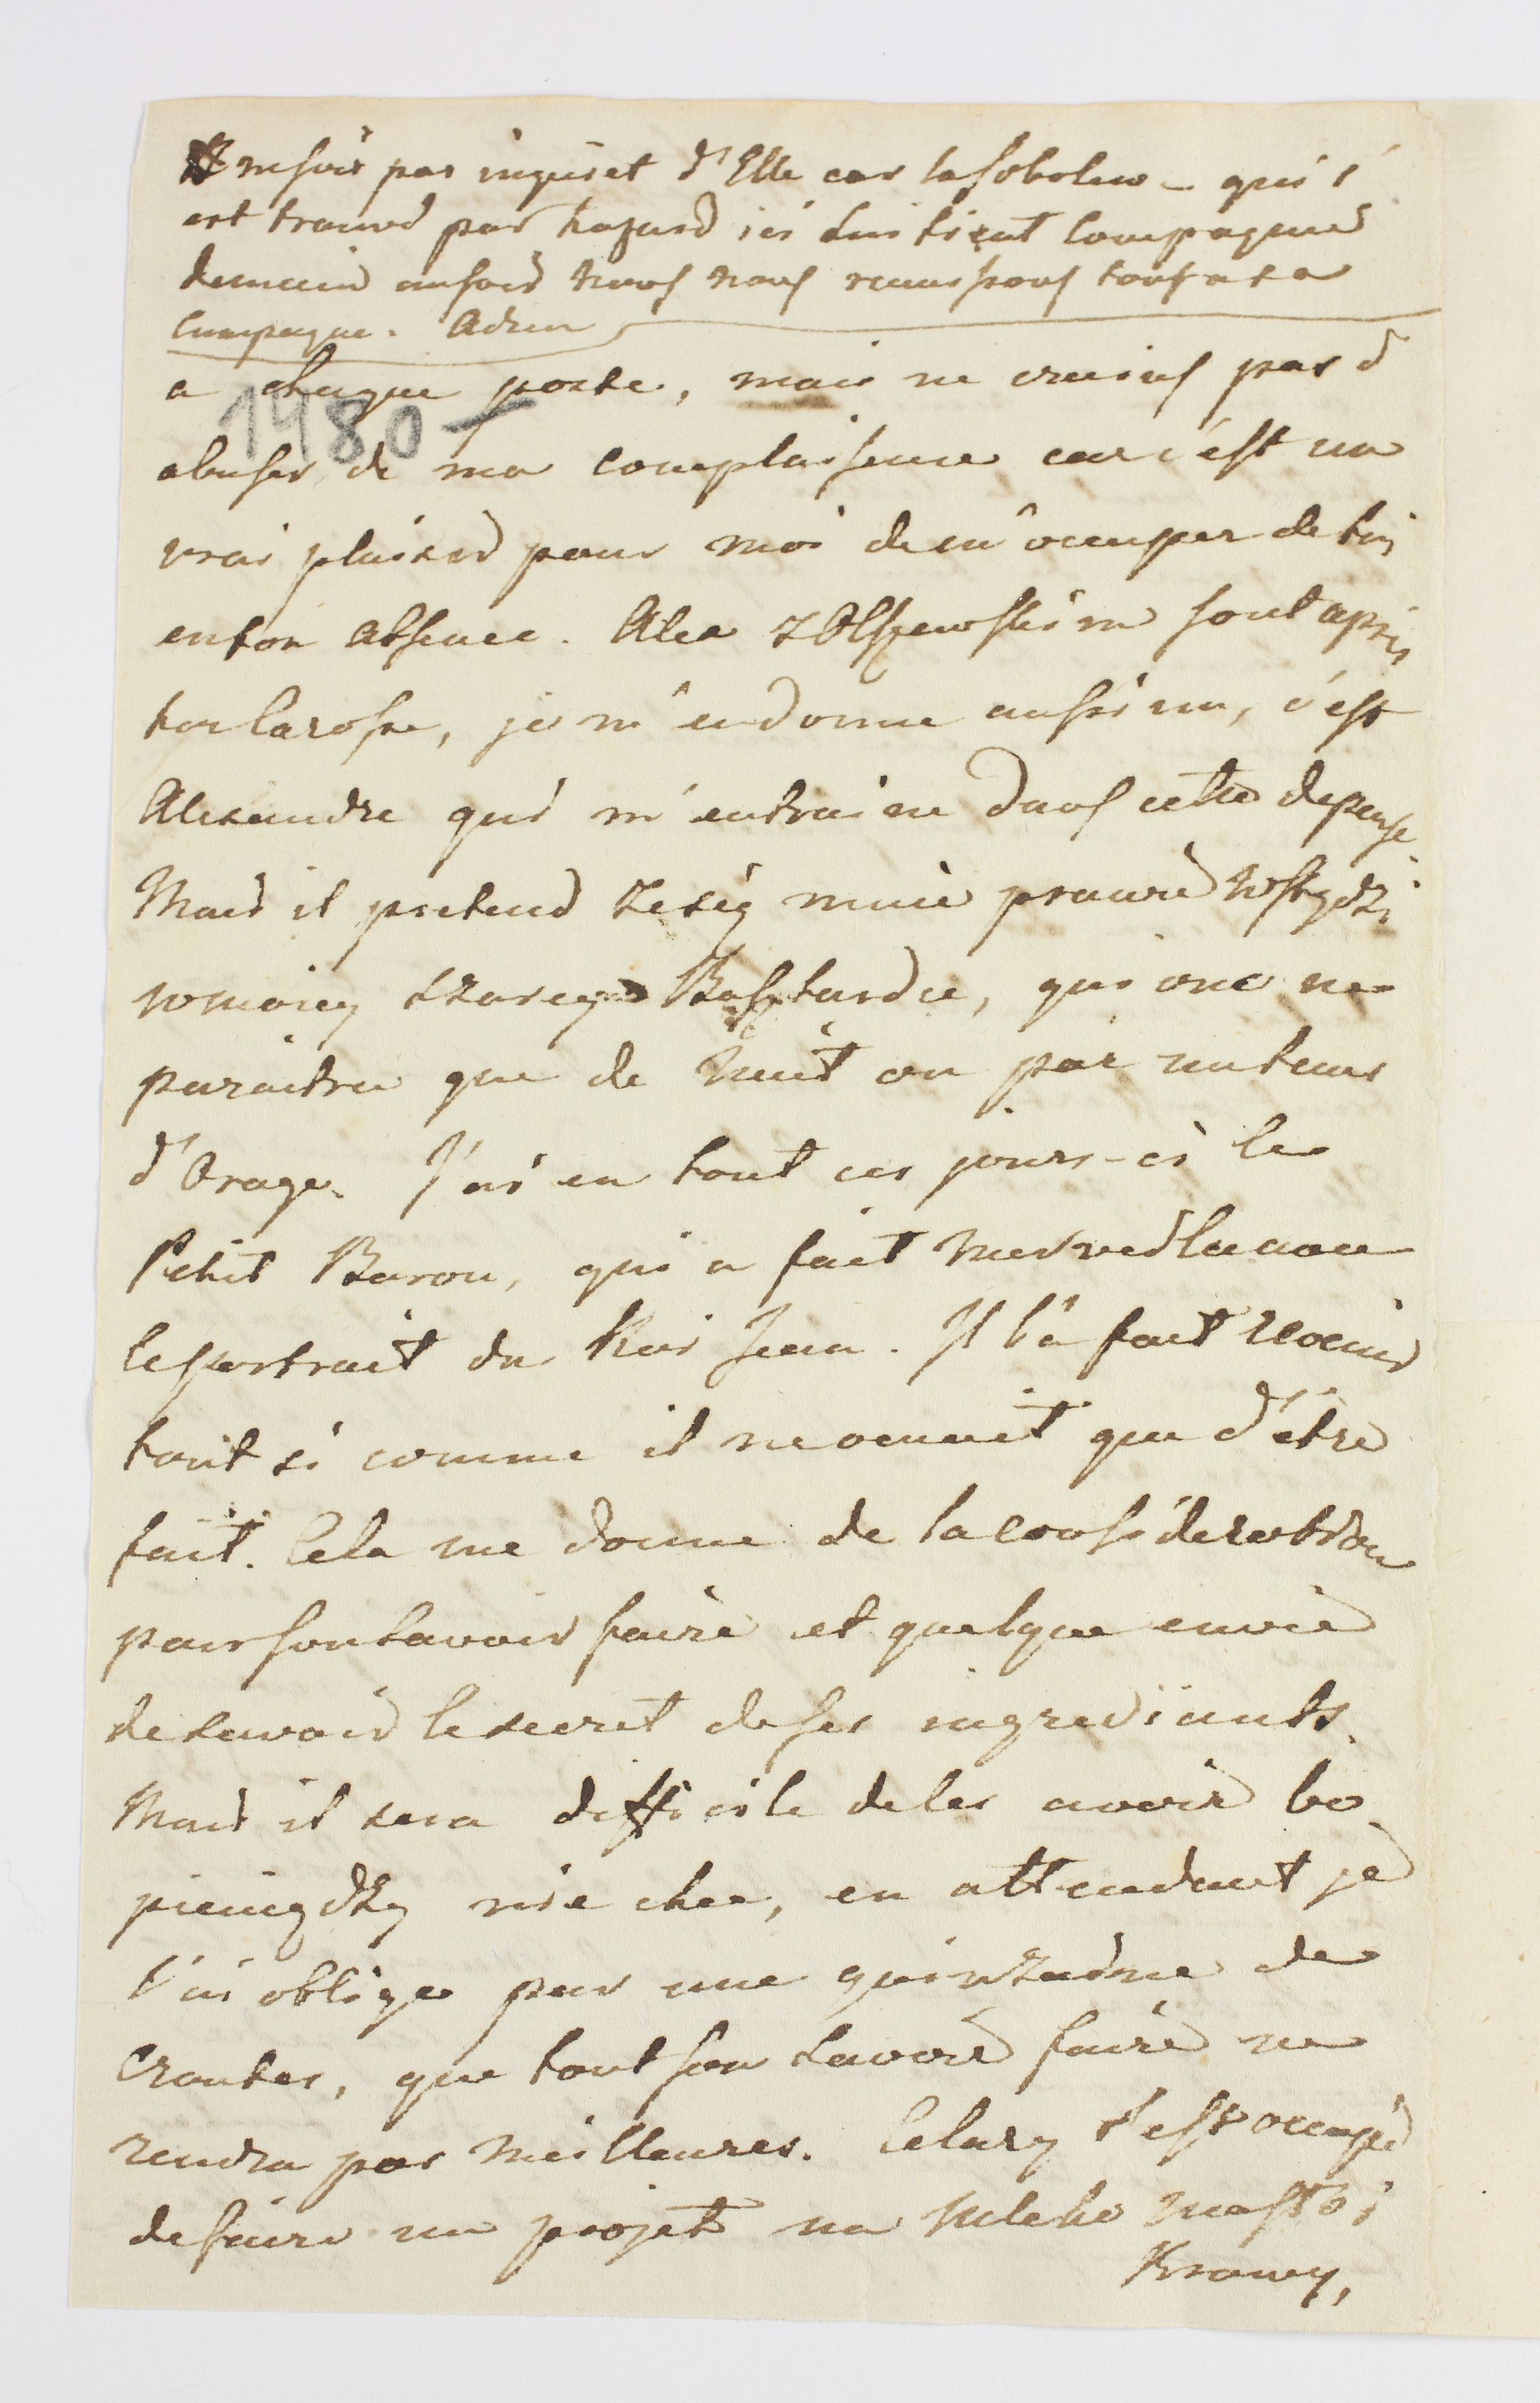 ne sois pas inquiet d'Elle car la Sobolew - qui s'
est trouvé par hazard ici lui tient Compagnie
demain au soir nous nous reunissons tous a la
Campagne. Adieu
a chaque poste, mais ne crains pas d
1980 -
abuser de ma complaisence car c'est un
vrai plaisir pour moi de m'occuper de toi
en ton absence. Alex z Olszewskim sont après
ton Carosse, je m'en donne aussi un, c'est
Alexandre qui m'entraine dans cette depense
Mais il pretend ze się mnie prawie wstydzi
w moiey starey Bastardie, qui ose ne
paraitre que de nuit ou par un tems
d'Orage. J'ai eu tout ces jours-ci le
Petit Baron, qui a fait
le portrait du Roi Jean. Il l'a fait
tout si comme il ne venait que d'être
fait. Cela me donne de la consideration
pour son savoir faire et quelque envie
de savoir le secret de ses ingrediants.
Mais il sera difficile de les avoir bo
pieniędzy nie chce, en attendant je
l'ai obligé par une quinzaine de
Croutes, que tout son savoir faire ne
rendra pas meilleures. Celary s'est occupé
de faire un projet na mleko naszoi
Krowy,